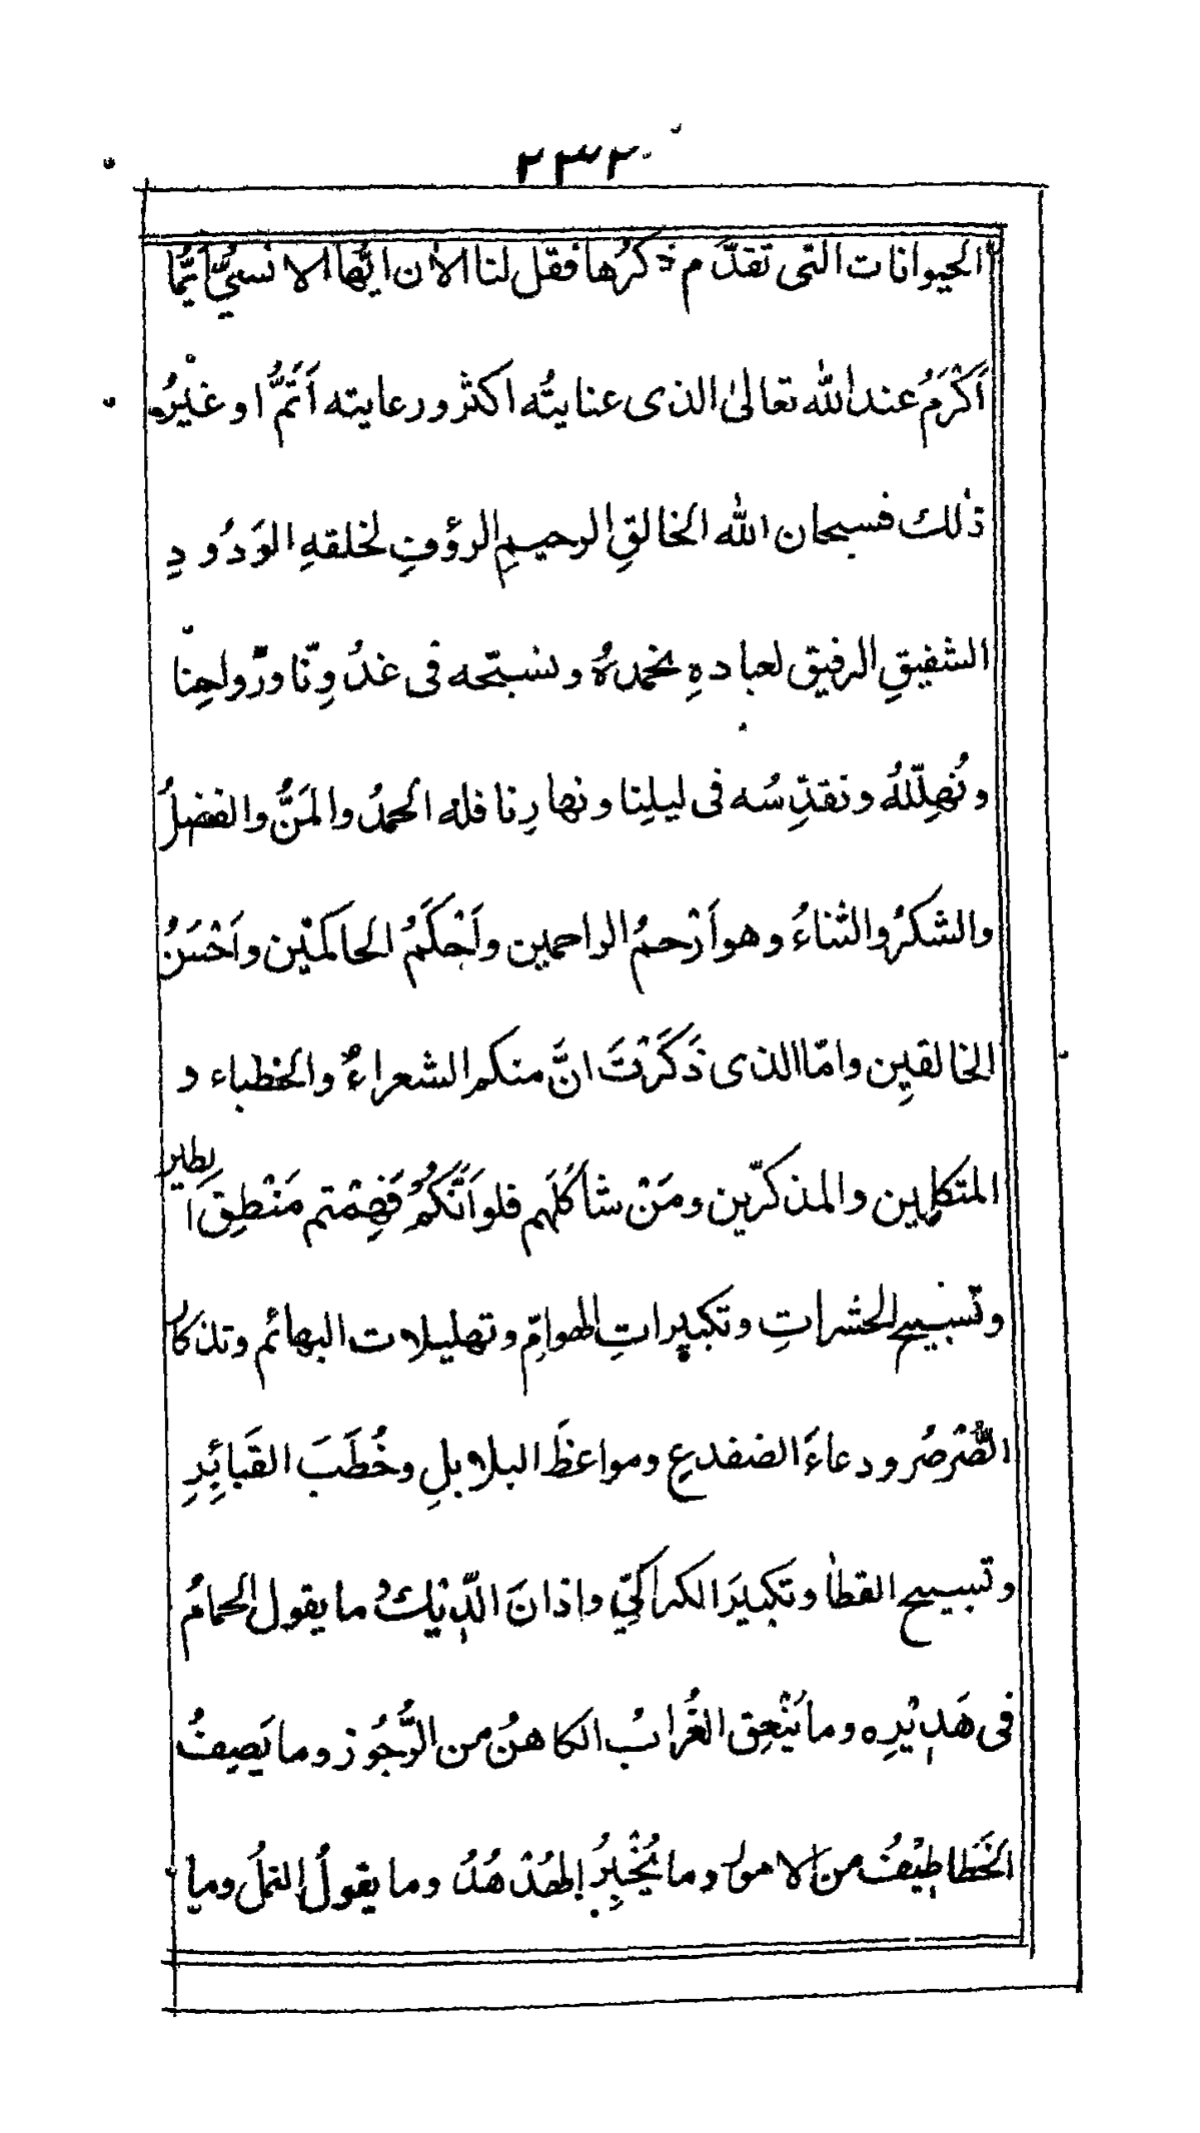 ٢٣٢
الحيوانات التى تقدَّم ذكرُها فقل لنا الأن ايُّها الانسىُّ اَيُّما
اَكْرَمُ عند الله تعالىٰ الذى عنايتُه اكثر ورعايته اَتَمُّ او غيْرُ
ذٰلك فسبحان الله الخالقِ الرحيمِ الرؤفِ لخلقهِ الوَدُودِ
الشفيقِ الرفيق لعبادهِ نحمدهُ ونسبّحه فى غدُوِّنا ورَواحِنا
ونُهلِّلهُ ونقدِّسُه فى ليلِنا ونهارِنا فله الحمدُ والمَنُّ والفضلُ
والشكرُ والثناءُ وهو اَرْحمُ الراحمين واَحْكَمُ الحاكمِيْن واَحْسَنُ
الخالقِين وامّا الذى ذَكَرْتَ انَّ منكم الشعراءُ والخطباء و
المتكلمين والمذكّرين ومَنْ شاكَلَهم فلو اَنَّكُمْ فَهِمْتم مَنْطِق الطير
وتسبيح الحشراتِ وتكبيراتِ الهوامِّ وتهليلات البهائم وتذكار
الصُّرْصُر ودعاءَ الضفدعِ ومواعظَ البلابلِ وخُطَبَ القَبائِرِ
وتسبيح القطا وتكبيرَ الكراكيِّ واذانَ الدِّيْك وما يقول الحمامُ
فى هَدِيْرِه وما يَنْعِق الغُرابُ الكاهنُ من الزُّجُوز وما يَصِفُ
الخَطاطِيْفُ من الامور وما يُخْبِرُ الهُدْهُدُ وما يقولُ النملُ وما